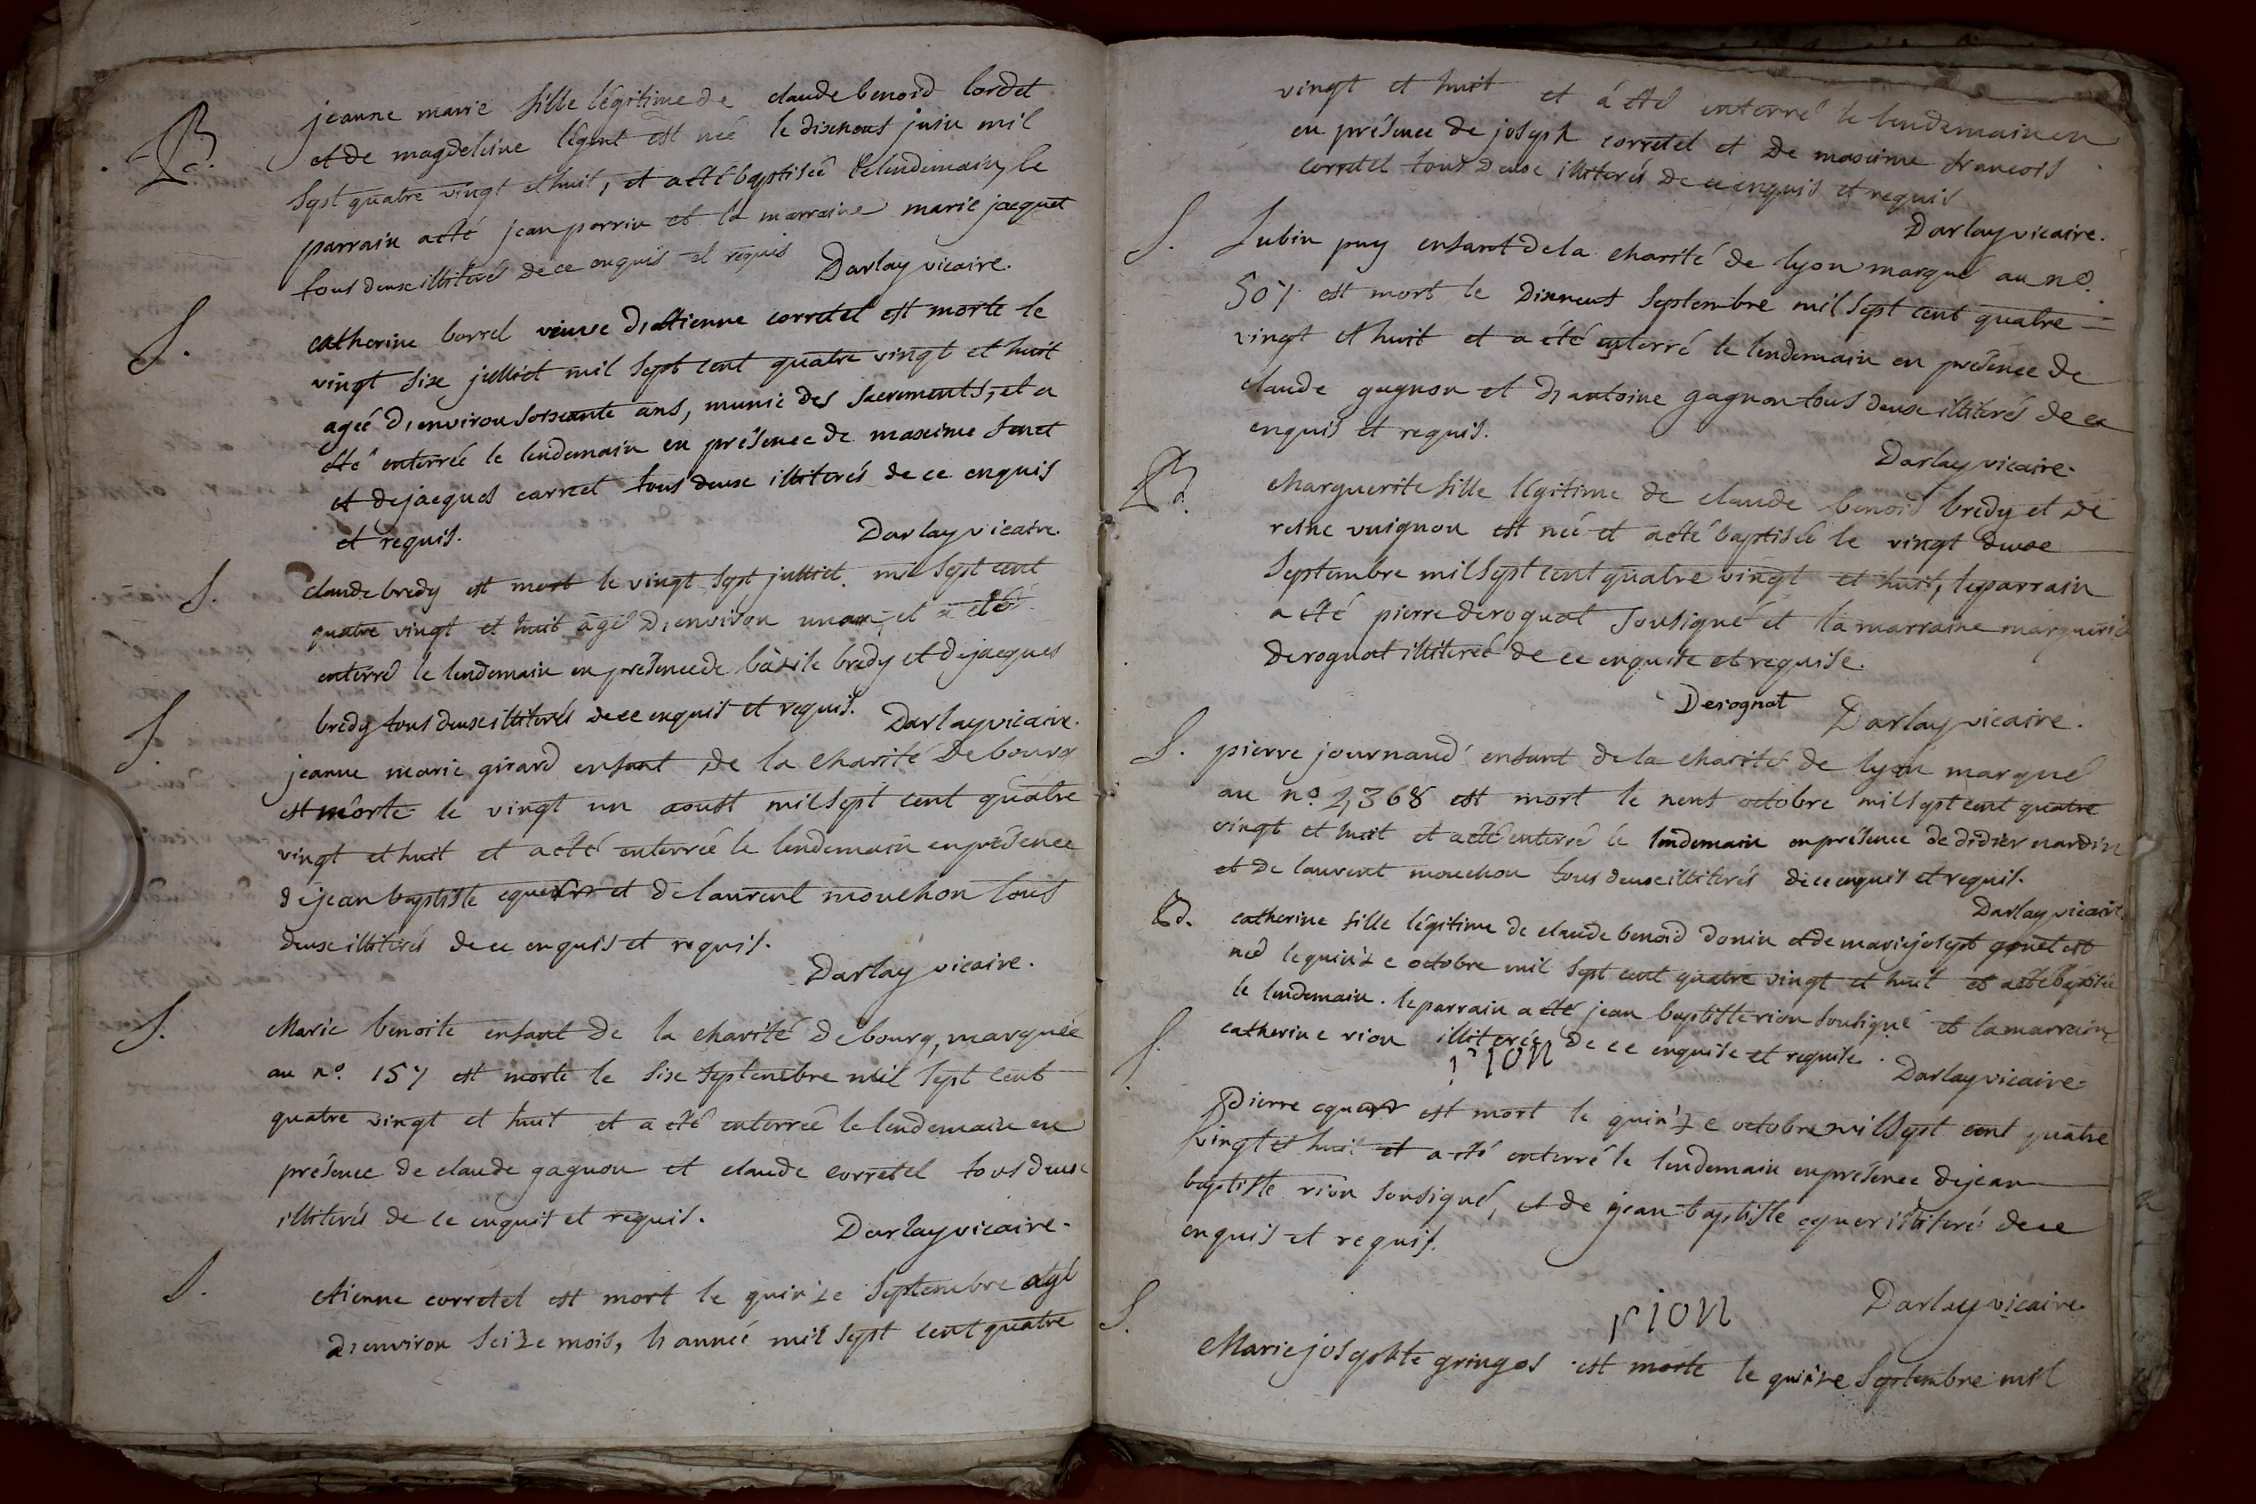 B.
jeanne marie fille légitime de claude benoid lordet
et de magdeleine légent est née le dixneuf juin mil
sept quatre vingt et huit, et a été baptisée le lendemain, le
parrain a été jean perrin et la marraine marie jacquet
tous deux illiterés de ce enquis et requis Darlay vicaire.
S.
catherine borrel veuve d'etienne corretel est morte le
vingt six juillet mil sept cent quatre vingt et huit
agée d'environ soixante ans, munie des sacrements, et a
été enterrée le lendemain en présence de maxime
et de jacques carret tous deux illiterés de ce enquis
et requis. Darlay vicaire.
S.
claude bredy est mort le vingt sept juillet mil sept cent
quatre vingt et huit âgé d'environ un an, et a été
enterré le lendemain en présence de basile bredy et de jacques
bredy tous deux illiterés de ce enquis et requis. Darlay vicaire.
S.
jeanne marie girard enfant de la charité de bourg
est morte le vingt un aoust mil sept cent quatre
vingt et huit et a été enterrée le lendemain en présence
de jean baptiste et de laurent mouchon tous
deux illiterés de ce enquis et requis.
Darlay vicaire.
S.
Marie benoite enfant de la charité de bourg, marquée
au n°. 157 est morte le six septembre mil sept cent
quatre vingt et huit et a été enterrée le lendemain en
présence de claude gagnon et claude corretel tous deux
illiterés de ce enquis et requis. Darlay vicaire.
S.
etienne corretel est mort le quinze septembre agé
d'environ seize mois, l'année mil sept cent quatre
vingt et huit et a été enterré le lendemain en
en présence de joseph corretel et de maxime francois
corretel tous deux illiterés de ce enquis et requis
Darlay vicaire.
S.
Lubin puy enfant de la charité de lyon marqué au n°.
507 est mort le dixneuf septembre mil sept cent quatre
vingt et huit et a été enterré le lendemain en présence de
claude gagnon et d'antoine gagnon tous deux illiterés de ce
enquis et requis.
Darlay vicaire.
B.
Marguerite fille légitime de claude benoid bredy et de
reine vuignon est née et a été baptisée le vingt deux
septembre mil sept cent quatre vingt et huit, le parrain
a été pierre derognat sousigné et la marraine marguerite
derognat illiterée de ce enquise et requise.
Derognat Darlay vicaire.
S.
pierre journaud enfant de la charité de lyon marqué
au n°. 2,368 est mort le neuf octobre mil sept cent quatre
vingt et huit et a été enterré le lendemain en présence de didier nardin
et de laurent mouchon tous deux illiterés de ce enquis et requis.
Darlay vicaire
B.
catherine fille légitime de claude benoid donin et de marie josept gonet est
née le quinze octobre mil sept cent quatre vingt et huit et a été baptisée
le lendemain. le parrain a été jean baptiste rion sousigné et la marraine
catherine rion illiterée de ce enquise et requise.
rion Darlay vicaire.
S.
Pierre est mort le quinze octobre mil sept cent quatre
vingt et huit et a été enterré le lendemain en présence de jean
baptiste rion sousigné, et de jean baptiste illiteré de ce
enquis et requis.
rion Darlay vicaire.
S.
Marie est morte le quinze septembre mil